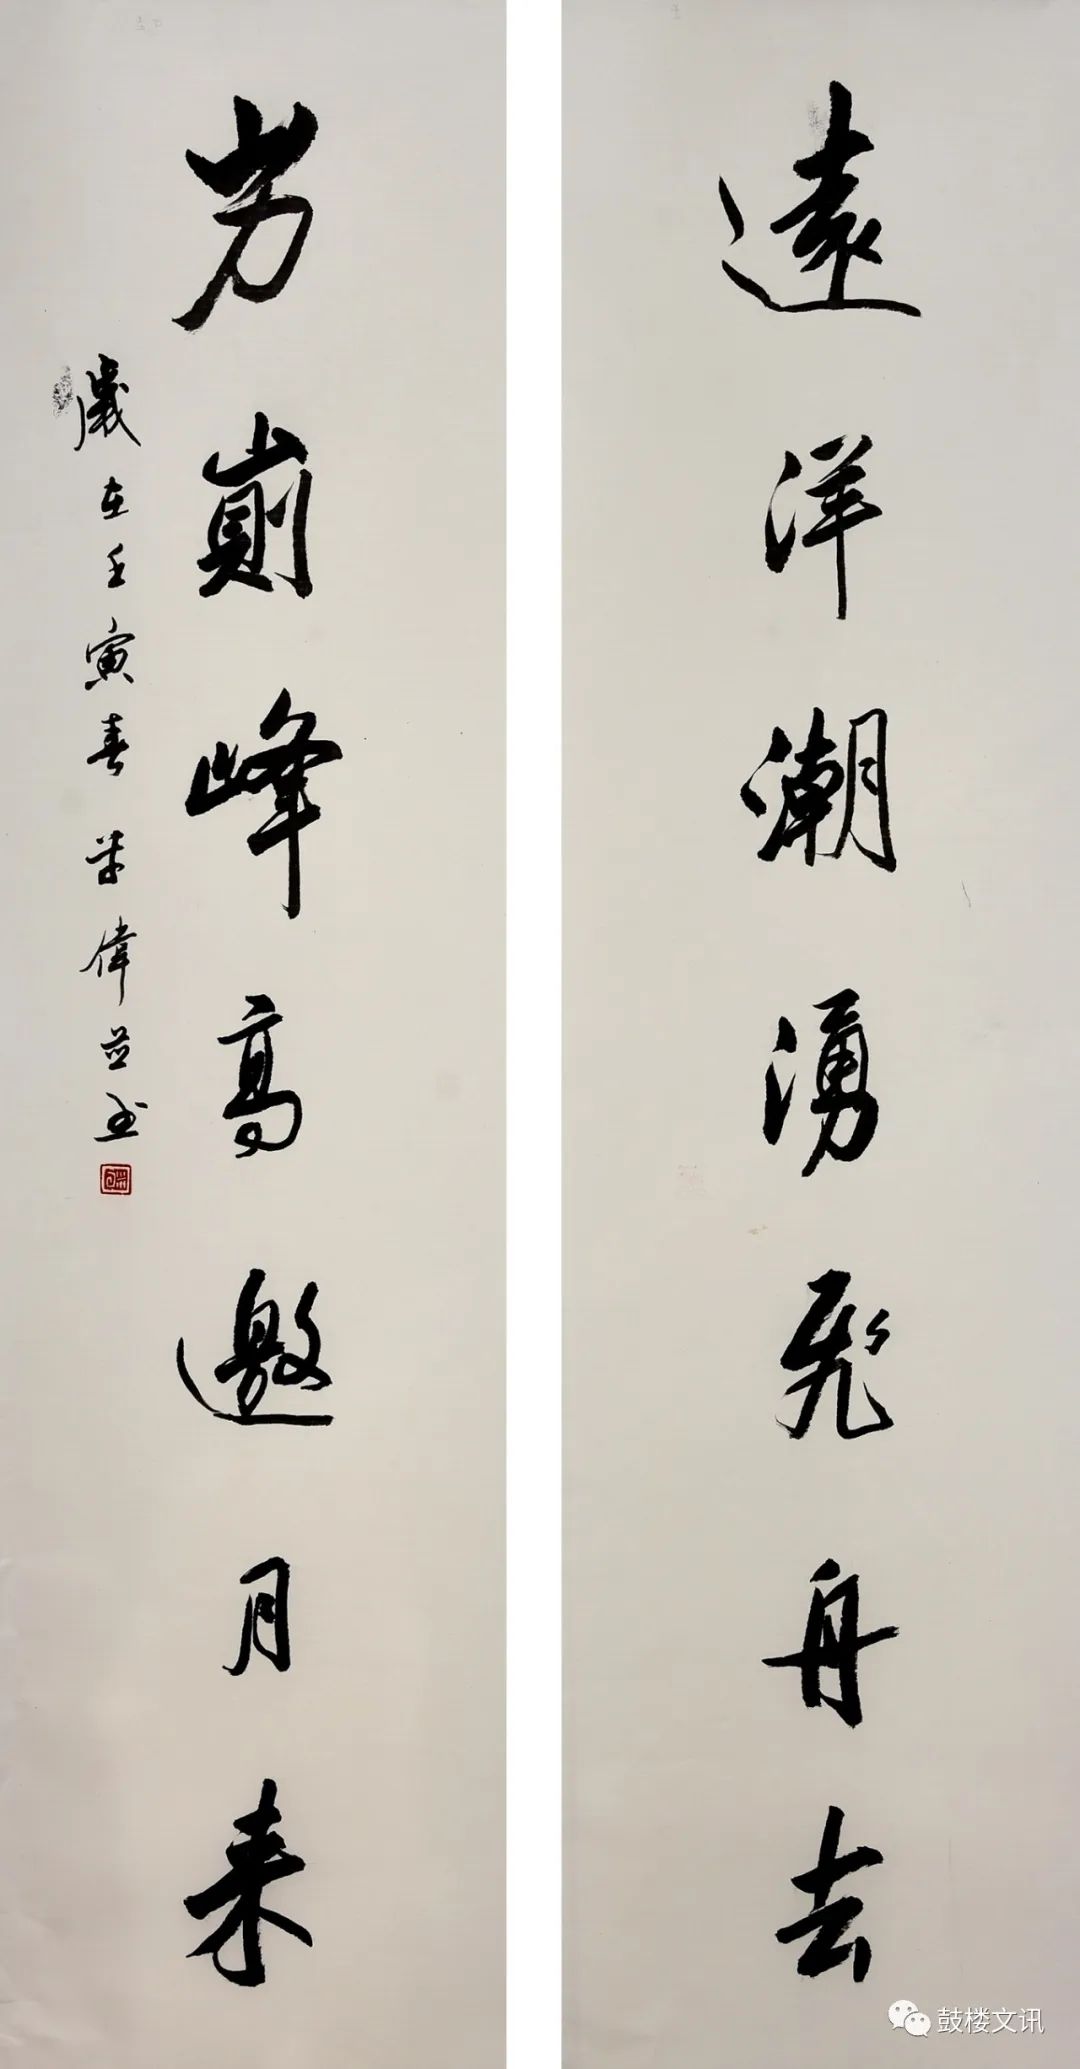 遠洋潮湧飛舟去
岁崱峰高邀月来
歲在壬寅春 偉並书
鼓楼文讯